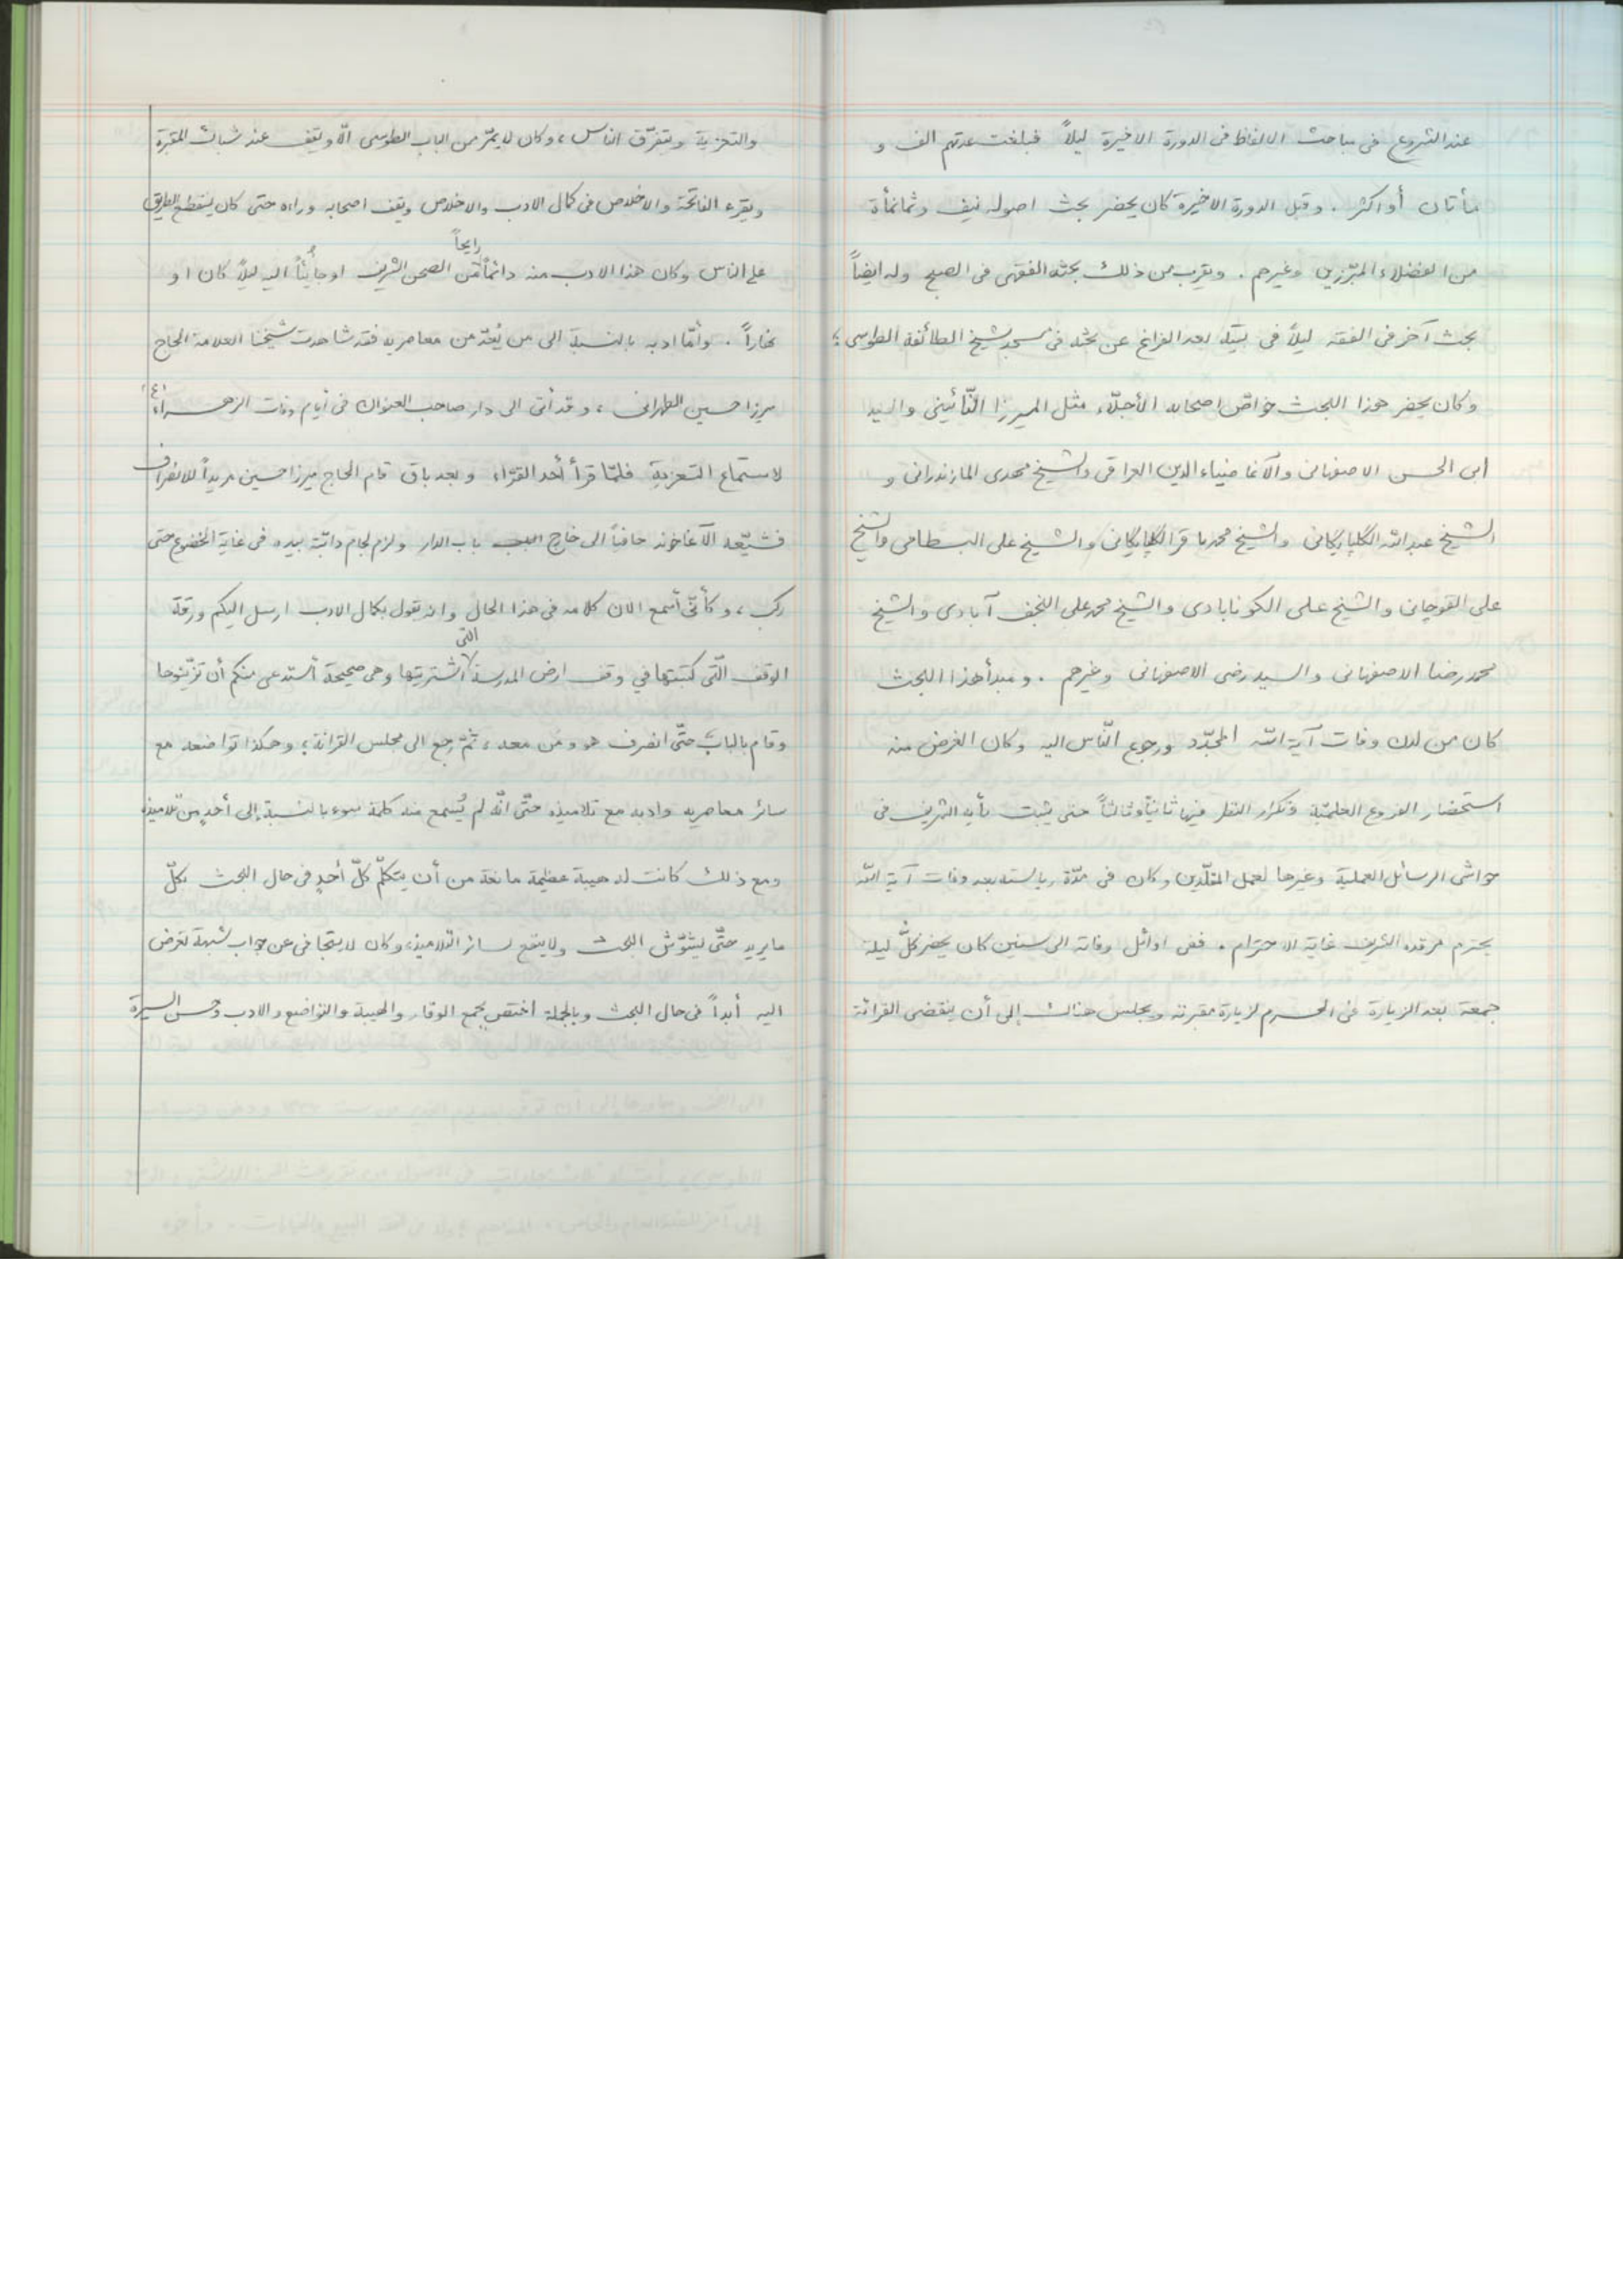 عند الشروع فى مباحث الالفاظ فى الدورة الاخيرة ليلاً فبلغت عدتهم الف و
مأتان أو اكثر . وقبل الدورة الاخيرة كان يحضر بحث اصوله نيف وثمانمأة
من الفضلاء المبّرزين وغيرهم . ويقرب من ذلك بحثه الفقهى فى الصبح وله ايضاً
بحث آخر فى الفقه ليلاً فى بيته بعد الفراغ عن بحثه فى مسجد شيخ الطائفة الطوسى ؛
وكان يحضر هذا البحث خواصّ اصحابه الأجلّاء مثل الميرزا النّائينى والسيد
ابى الحسن الاصفهانى والآغا ضياء الدين العراقى والشيخ مهدى المازندرانى و
الشيخ عبدالله الگلپايگانى والشيخ محمد باقر الگلپايگانى والشيخ على البسطامى والشيخ
على القوچانى والشيخ على الگونابادى والشيخ محمد على النجف آبادى والشيخ
محمد رضا الاصفهانى والسيد رضى الاصفهانى وغيرهم . ومبدأ هذا البحث
كان من لدن وفات آية الله المجدّد ورجوع النّاس اليه وكان الغرض منه
استحضار الفروع العلميّة وتكرار النظر فيها ثانياً وثالثاً حتى يثبت رأيه الشريف فى
حواشى الرسائل العملية وغيرها لعمل المقلّدين وكان فى مدّة رياسته بعد وفات آية الله
يحترم مرقده الشريف غاية الاحترام . ففى اوائل وفاته الى سنين كان يحضر كلّ ليلة
جمعة بعد الزيارة فى الحرم لزيارة مقبرته ويجلس هناك إلى أن ينقضى القرائة
والتعزية ويتفرّق الناس ، وكان لا يمرّ من الباب الطوسى الّا ويقف عند شباك المقبرة
ويقرء الفاتحة والاخلاص فى كمال الادب والاخلاص ويقف اصحابه وراءه حتى كان ينقطع الطريق
على الناس وكان هذا الادب منه دائماً رايحاً من الصحن الشريف او جائياً اليه ليلاً كان او
نهاراً . وأمّا ادبه بالنسبة الى من يُعدّ من معاصريه فقد شاهدت شيخنا العلامة الحاج
ميرزا حسين الطهرانى ، وقد أتى الى دار صاحب العنوان فى أيام وفات الزهراء (٤)
لاستماع التعزية فلمّا قرأ أحد القرّاء وبعد باق قام الحاج ميرزا حسين مريداً للانصراف
فشيّعه الآغاخوند حافياً الى خارج باب الدار ولزم لجام دابّته بيده فى غاية الخضوع حتى
ركب ، وكأنّى أسمع الان كلامه فى هذا الحال وانه يقول بكمال الادب ارسل اليكم ورقة
الوقف الّتى كتبتها في وقف ارض المدرسة الّتى اشتريتها وهى صحيحة أستدعى منكم أن تزيّنوها
وقام بالباب حتّى انصرف هو ومن معه ، ثمّ رجع الى مجلس القرائة ؛ وهكذا تواضعه مع
سائر معاصريه وادبه مع تلاميذه حتّى انّه لم يُسمع منه كلمة سوء بالنسبة إلى أحدٍ من تلاميذه
ومع ذلك كانت له هيبة عظيمة مانعة من أن يتكلّم كلّ أحدٍ فى حال البحث بكلّ
ما يريد حتّى يشوّش البحث ولا ينتفع سائر التّلاميذ، وكان لا يتجافى عن جواب شبهة تعرض
اليه أبداً فى حال البحث وبالجملة اختصّ بجمع الوقار والهيبة والتواضع والادب وحسن السيرة